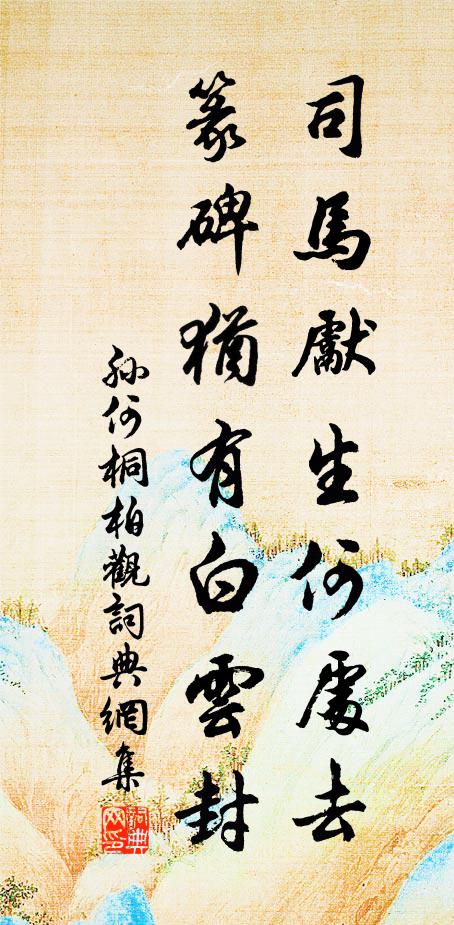 司馬獻生何處去
篆碑猶有白雲封
孫何桐柏觀詞典網集
詞典網印